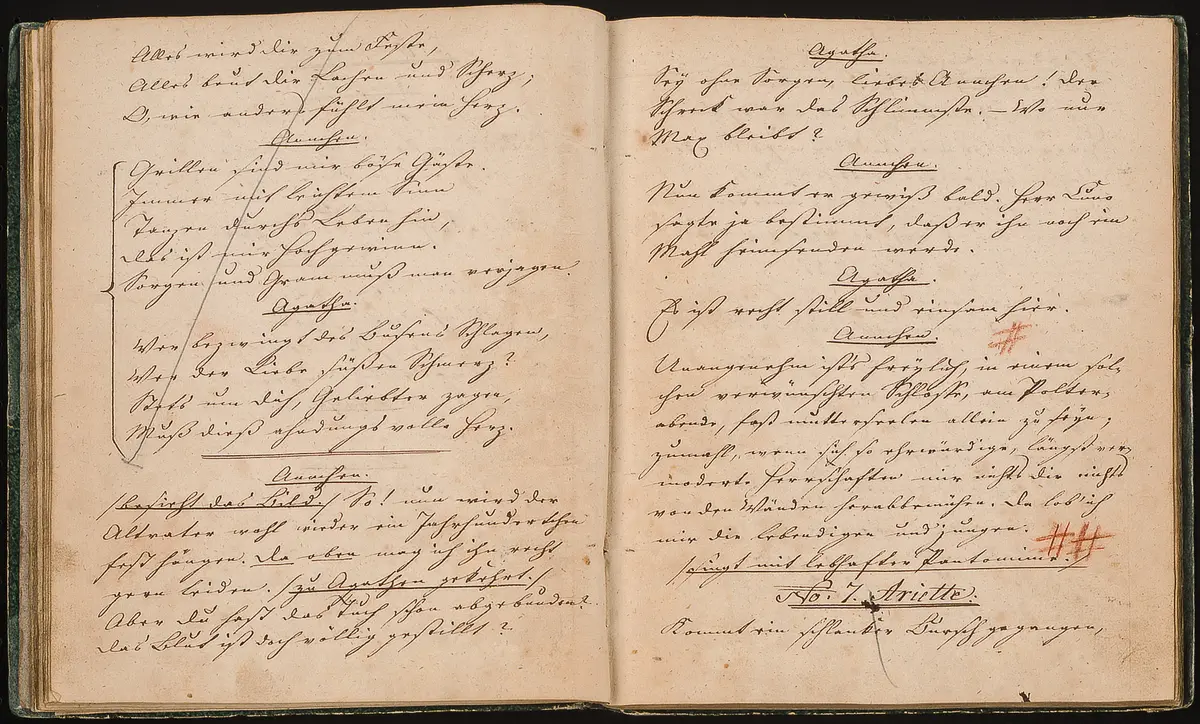 Alles wird dir zum Feste,
Alles beut dir Lachen und Scherz;
O, wie anders fühlt mein Herz.
Annchen.
Grillen sind mir böse Gäste.
Immer mit leichtem Sinn
Tanzen durchs Leben hin,
Das ist mir Hochgewinn.
Sorgen und Gram muß man verjagen.
Agatha.
Wer bezwingt des Busens Schlagen,
Wer der Liebe süßen Schmerz?
Stets um dich, Geliebter zagen,
Muß dieß ahndungsvolle Herz.
Annchen.
/besieht das Bild./ So! nun wird der
Altvater wohl wieder ein Jahrhundertchen
fest hängen. Da oben mag ich ihn recht
gern leiden. /zu Agathen gekehrt./
Aber du hast das Tuch schon abgebunden?
das Blut ist doch völlig gestillt?
Agatha.
Sey ohne Sorgen, liebes Annchen! Der
Schreck war das Schlimmste. – Wo nur
Max bleibt?
Annchen.
Nun kommt er gewiß bald. Herr Cuno
sagte ja bestimmt, daß er ihn noch ein
Mahl heimsenden werde.
Agatha.
Es ist recht still und einsam hier.
Annchen.
Unangenehm ists freylich, in einem sol-
chen verwünschten Schlosse, am Polter-
abende, fast mutterseelen allein zu seyn;
zumahl, wenn sich so ehrwürdige, längst ver-
moderte Herrschaften mir nichts dir nichts
von den Wänden herabbemühen. Da lob ich
mir die lebendigen und jungen.
/singt mit lebhafter Pantomime./
No. 7. Ariette.
Kommt ein schlanker Bursch gegangen,